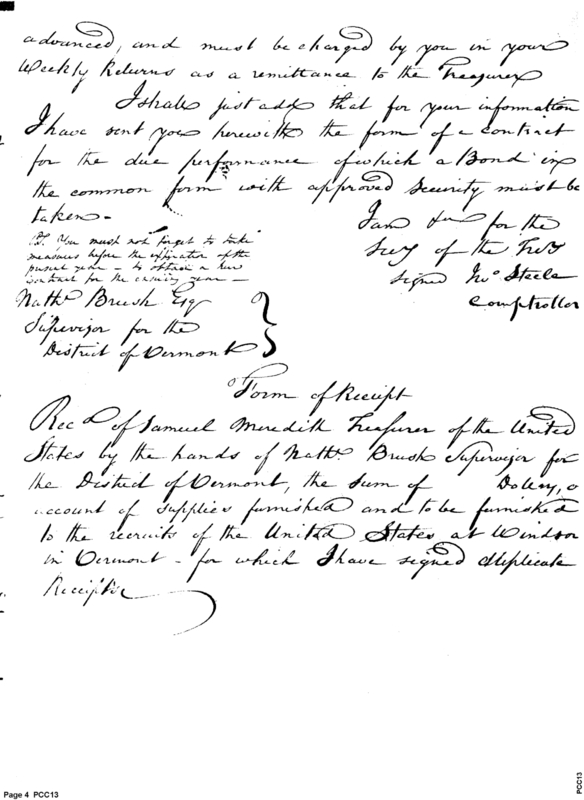 advanced, and must be charged by you in your
Weekly Returns as a remittance to the Treasurer
I shall just add that for your information
I have sent you herewith the form of a contract
for the due performance of which a Bond in
the common form with approved Security must be
taken -
I am &c for the
Secy of the Trsy
signed Jno Steele
Comptroller
PS. You must not forget to take
measures before the expiration of the
present year - to obtain a new
contract for the ensuing year -
Nathl Brush Esq
Supervisor for the
District of Vermont
Form of Receipt
Recd of Samuel Meredith Treasurer of the United
States by the hands of Nathl Brush Supervisor for
the District of Vermont, the sum of Dollars, o
account of supplies furnished and to be furnished
to the recruits of the United States at Windsor
in Vermont - for which I have signed duplicate
Receipts
Page 4 PCC13
PCC13